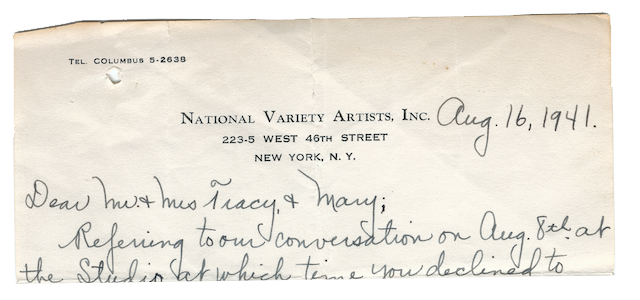 TEL. COLUMBUS 5-2638
NATIONAL VARIETY ARTISTS, INC.
Aug. 16, 1941.
223-5 WEST 46TH STREET
NEW YORK, N. Y.
Dear Mr. & Mrs Tracy, & Mary;
Refering to our conversation on Aug. 8th. at
the Studio at which time you declined to